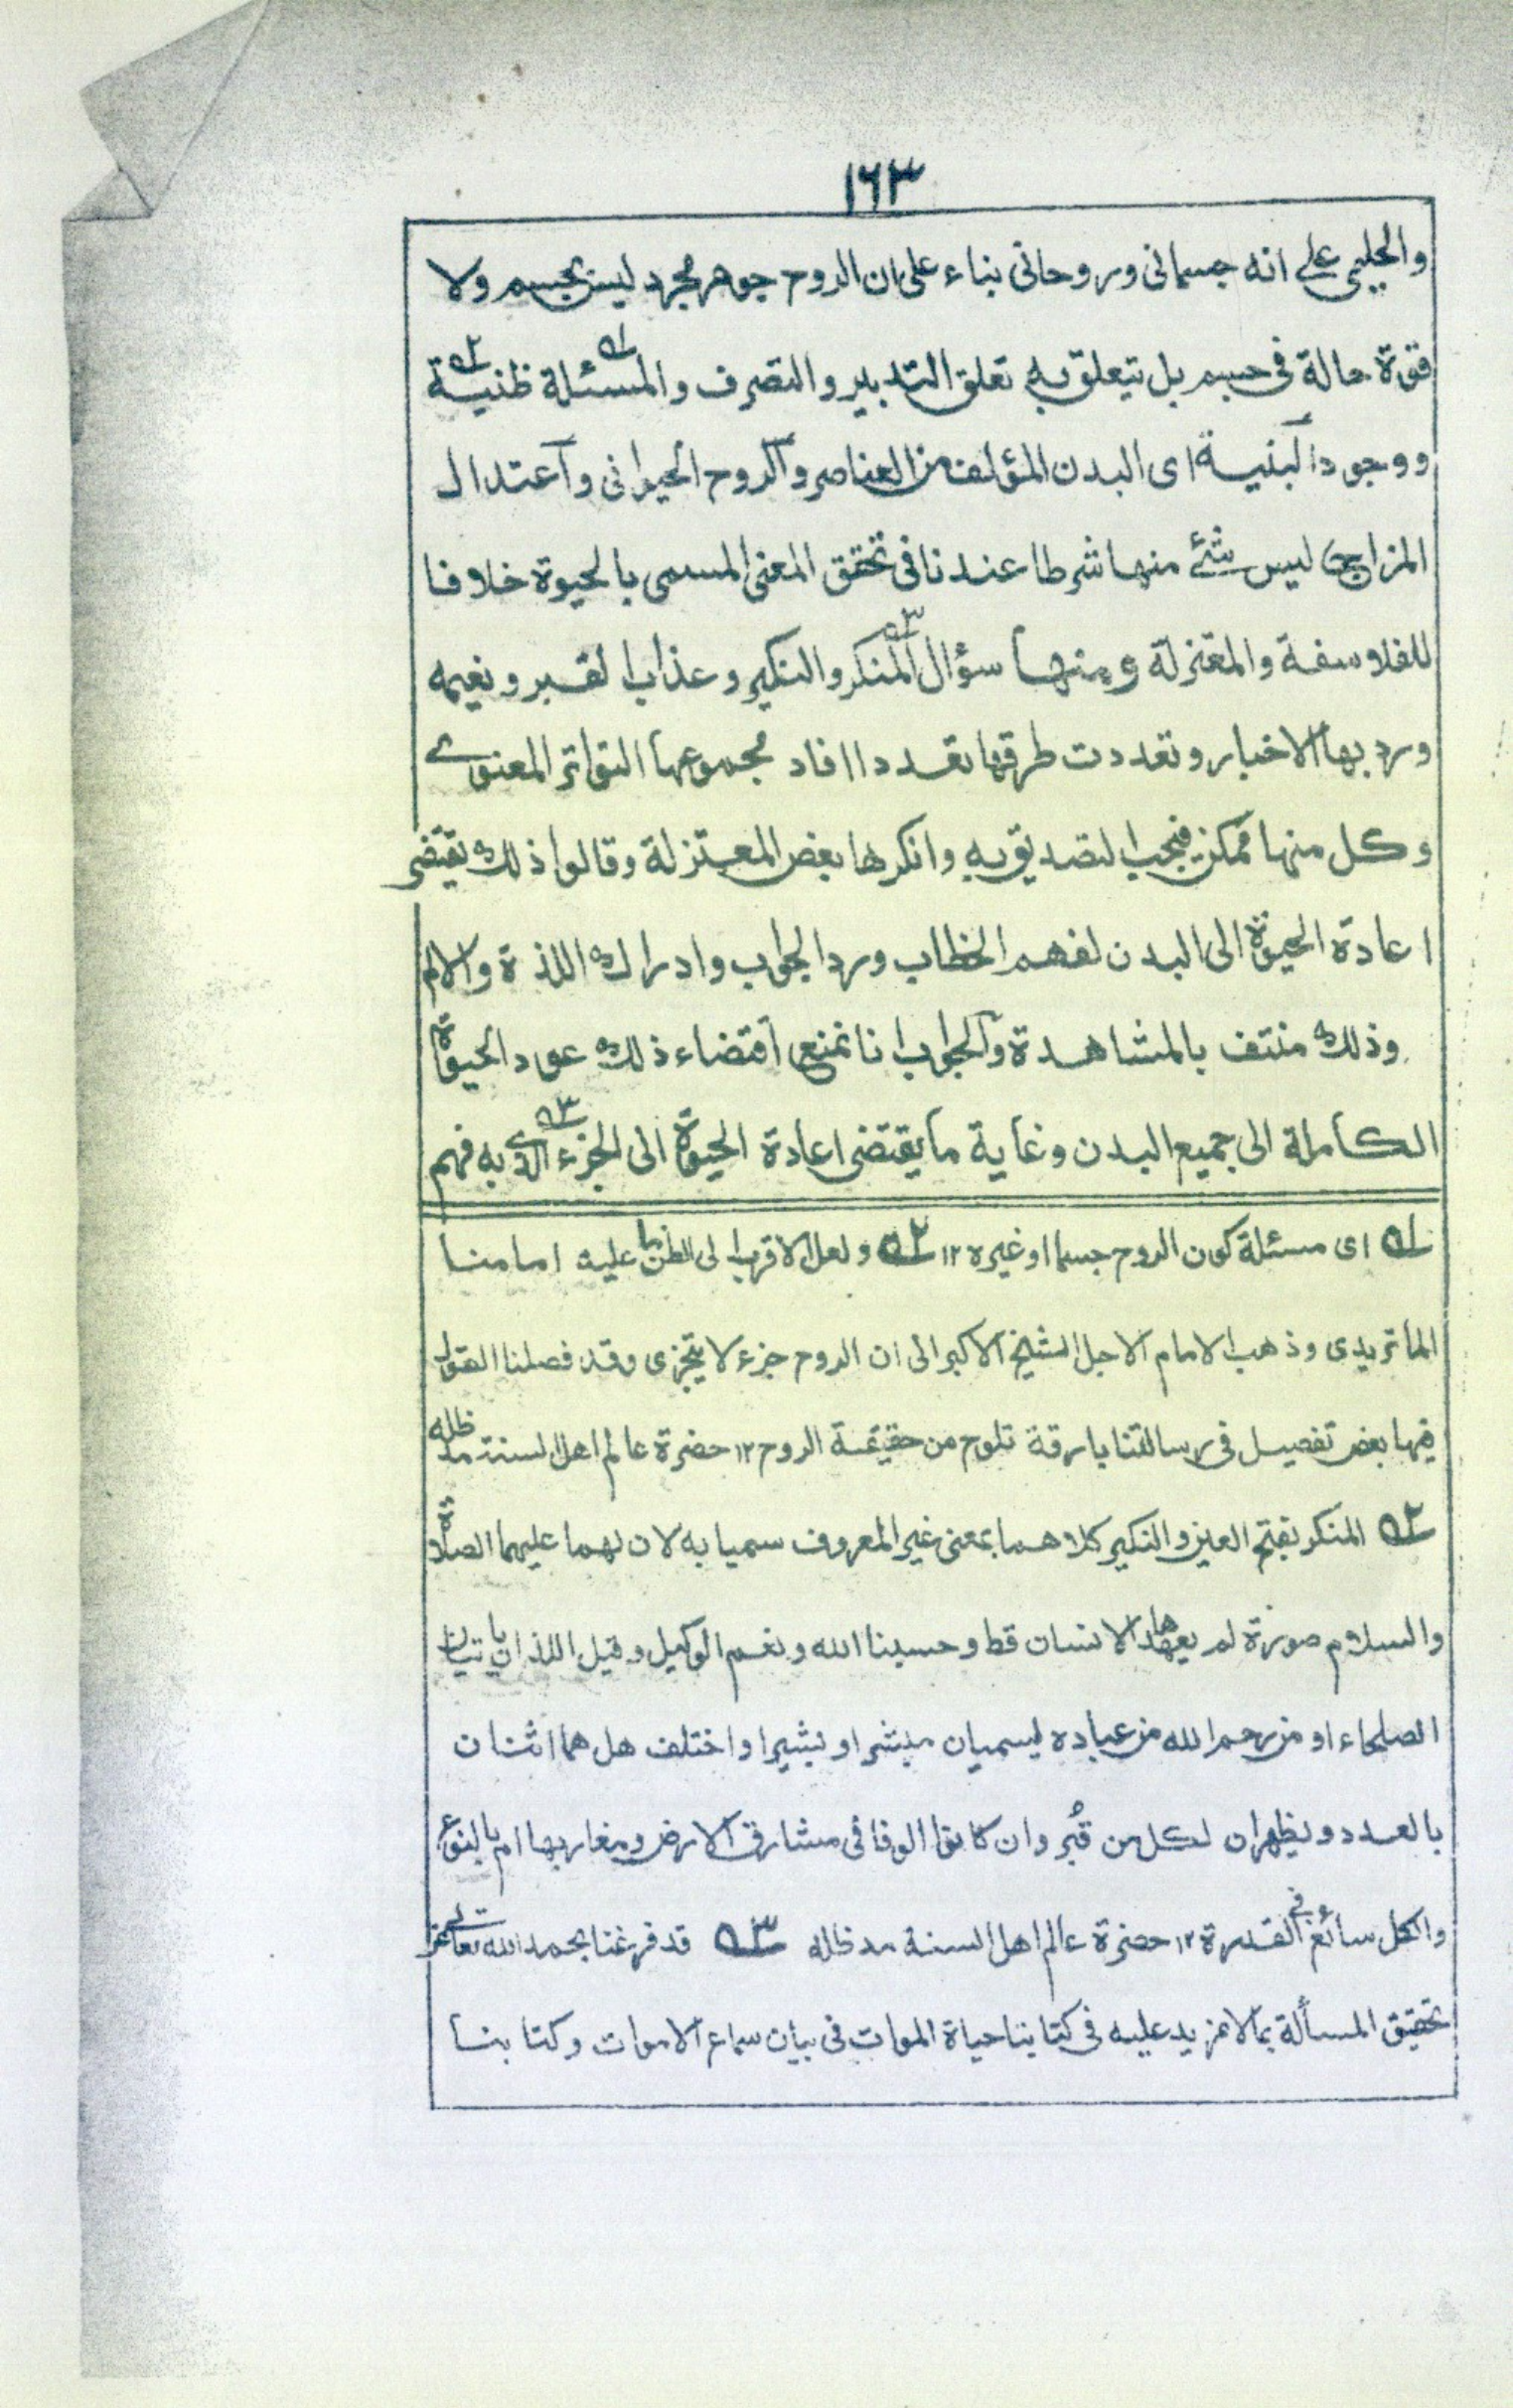 ١٦٣
والحليمى على انه جسمانى وروحانى بناء على ان الروح جوهر مجرد ليس بجسم ولا
قوة حالة فى جسم بل يتعلق به تعلق التدبير والتصرف والمسئلة ظنية
ووجود البنية اى البدن المؤلف من العناصر والروح الحيوانى واعتدال
المزاج ليس شئ منها شرطا عندنا فى تحقق المعنى المسمى بالحيوة خلافا
للفلاسفة والمعتزلة ومنها سؤال المنكر والنكير وعذاب القبر ونعيمه
ورد بها الاخبار وتعددت طرقها تعددا افاد مجموعها التواتر المعنوى
وكل منها ممكن فيجب التصديق به وانكرها بعض المعتزلة وقالوا ذلك يقتضى
اعادة الحيوة الى البدن لفهم الخطاب ورد الجواب وادراك اللذة والالم
وذلك منتف بالمشاهدة والجواب انا نمنع اقتضاء ذلك عود الحيوة
الكاملة الى جميع البدن وغاية ما يقتضى اعادة الحيوة الى الجزء الذى به فهم
١؎ اى مسئلة كون الروح جسما او غيره ١٢ ٢؎ ولعل الاقرب الى الظن ما عليه امامنا
الماتريدى وذهب الامام الاجل الشيخ الاكبر الى ان الروح جزء لا يتجزى وقد فصلنا القول
فيها بعض تفصيل فى رسالتنا بارقة تلوح من حقيقة الروح ١٢ حضرة عالم اهل السنة مد ظله
٣؎ المنكر بفتح العين والنكير كلاهما بمعنى غير المعروف سميا به لان لهما عليهما الصلاة
والسلام صورة لم يعهدها الانسان قط وحسبنا الله ونعم الوكيل وقيل اللذان ياتيان
الصلحاء او من رحم الله من عباده يسميان مبشرا وبشيرا واختلف هل هما اثنان
بالعدد ويظهران لكل من قبر وان كانوا الوفا فى مشارق الارض ومغاربها ام بالنوع
والكل سائغ فى القدرة ١٢ حضرة عالم اهل السنة مد ظله ٣؎ قد فرغنا بحمد الله تعالى عن
تحقيق المسألة بما لا مزيد عليه فى كتابنا حياة الموات فى بيان سماع الاموات وكتابنا